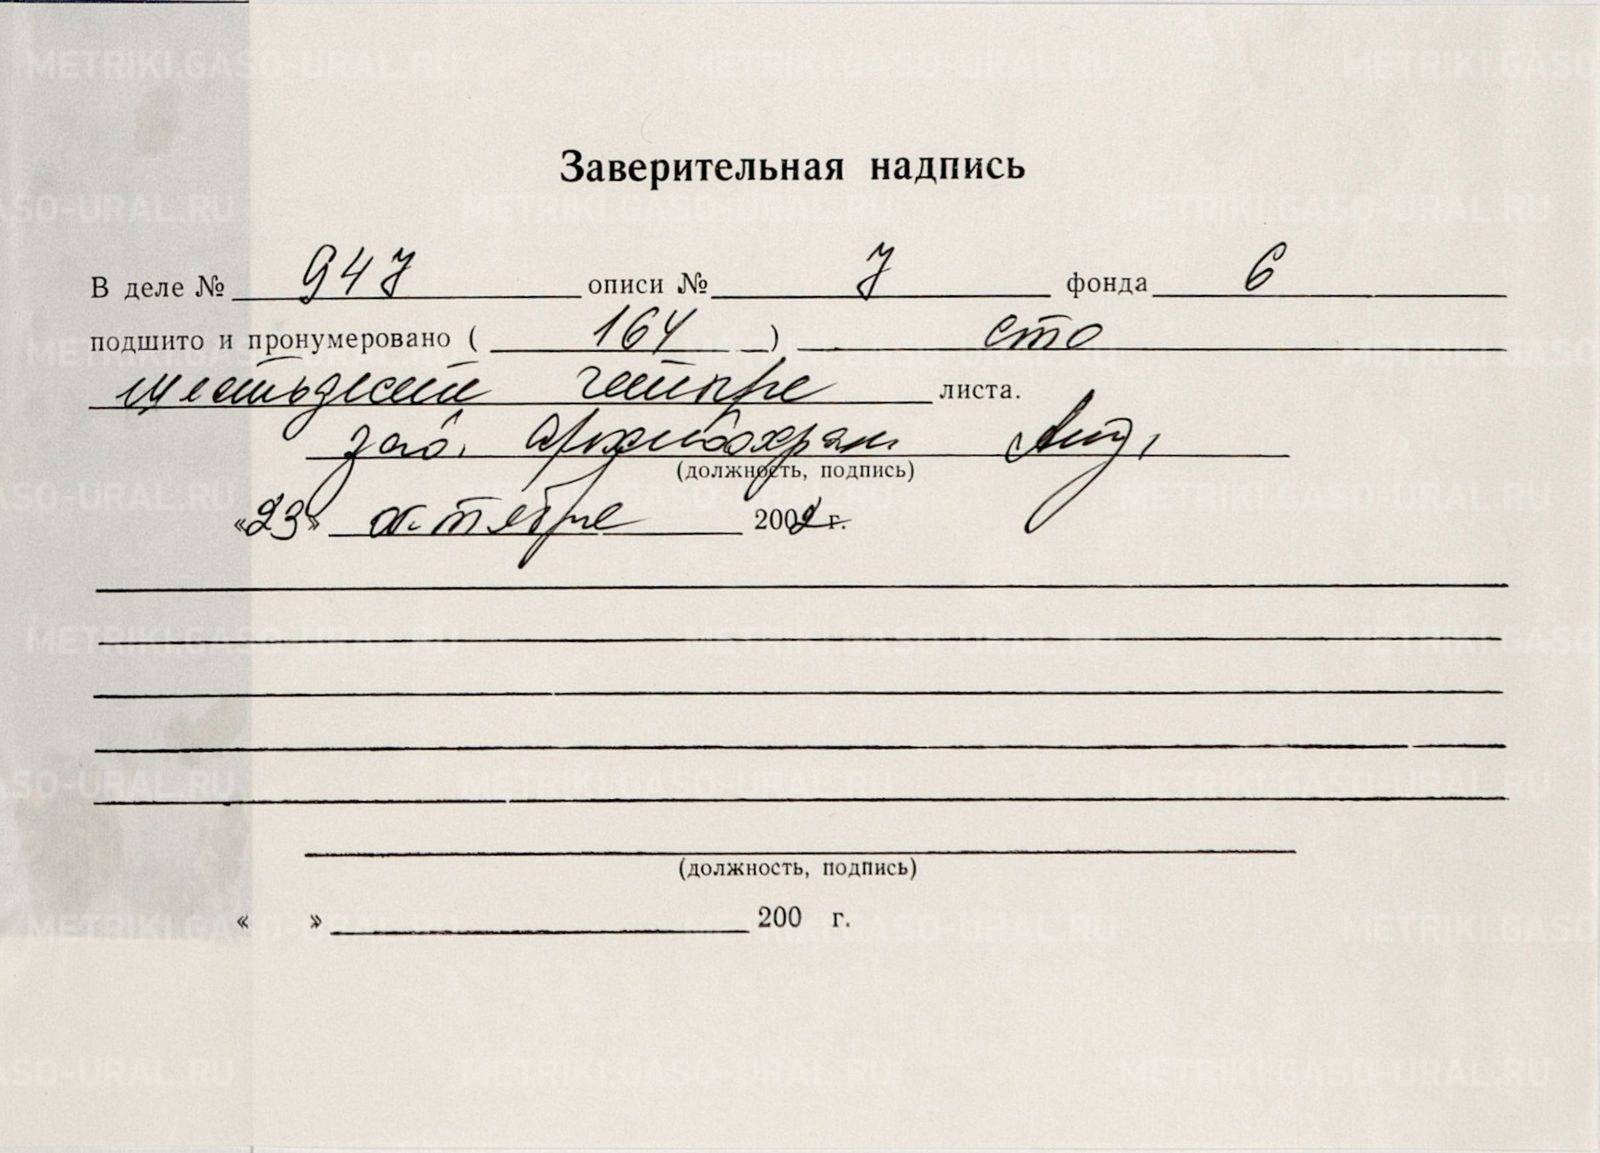 Заверительная надпись
В деле № 947 описи № 7 фонда 6
подшито и пронумеровано ( 164 ) сто
шестьдесят четыре листа.
зав. архивохран.
(должность, подпись)
«23» октября 2002 г.
(должность, подпись)
« » 200 г.
METRIKI.GASO-URAL.RU